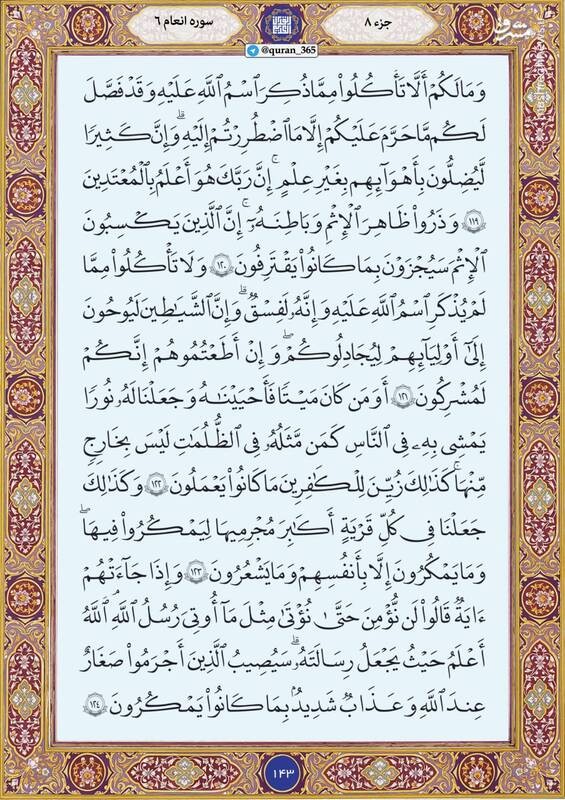 جزء ۸
سوره انعام ۶
@quran_365
مشرق
mashreghnews.ir
وَمَالَكُمْ أَلَّا تَأْكُلُوا۟ مِمَّا ذُكِرَ ٱسْمُ ٱللَّهِ عَلَيْهِ وَقَدْ فَصَّلَ
لَكُم مَّا حَرَّمَ عَلَيْكُمْ إِلَّا مَا ٱضْطُرِرْتُمْ إِلَيْهِ ۗ وَإِنَّ كَثِيرًا
لَّيُضِلُّونَ بِأَهْوَآئِهِم بِغَيْرِ عِلْمٍ ۗ إِنَّ رَبَّكَ هُوَ أَعْلَمُ بِٱلْمُعْتَدِينَ
١١٩ وَذَرُوا۟ ظَٰهِرَ ٱلْإِثْمِ وَبَاطِنَهُۥٓ ۚ إِنَّ ٱلَّذِينَ يَكْسِبُونَ
ٱلْإِثْمَ سَيُجْزَوْنَ بِمَا كَانُوا۟ يَقْتَرِفُونَ ١٢٠ وَلَا تَأْكُلُوا۟ مِمَّا
لَمْ يُذْكَرِ ٱسْمُ ٱللَّهِ عَلَيْهِ وَإِنَّهُۥ لَفِسْقٌ ۗ وَإِنَّ ٱلشَّيَٰطِينَ لَيُوحُونَ
إِلَىٰٓ أَوْلِيَآئِهِمْ لِيُجَٰدِلُوكُمْ ۖ وَإِنْ أَطَعْتُمُوهُمْ إِنَّكُمْ
لَمُشْرِكُونَ ١٢١ أَوَمَن كَانَ مَيْتًا فَأَحْيَيْنَٰهُ وَجَعَلْنَا لَهُۥ نُورًا
يَمْشِى بِهِۦ فِى ٱلنَّاسِ كَمَن مَّثَلُهُۥ فِى ٱلظُّلُمَٰتِ لَيْسَ بِخَارِجٍ
مِّنْهَا ۚ كَذَٰلِكَ زُيِّنَ لِلْكَٰفِرِينَ مَا كَانُوا۟ يَعْمَلُونَ ١٢٢ وَكَذَٰلِكَ
جَعَلْنَا فِى كُلِّ قَرْيَةٍ أَكَٰبِرَ مُجْرِمِيهَا لِيَمْكُرُوا۟ فِيهَا ۖ
وَمَا يَمْكُرُونَ إِلَّا بِأَنفُسِهِمْ وَمَا يَشْعُرُونَ ١٢٣ وَإِذَا جَآءَتْهُمْ
ءَايَةٌ قَالُوا۟ لَن نُّؤْمِنَ حَتَّىٰ نُؤْتَىٰ مِثْلَ مَآ أُوتِىَ رُسُلُ ٱللَّهِ ۘ ٱللَّهُ
أَعْلَمُ حَيْثُ يَجْعَلُ رِسَالَتَهُۥ ۗ سَيُصِيبُ ٱلَّذِينَ أَجْرَمُوا۟ صَغَارٌ
عِندَ ٱللَّهِ وَعَذَابٌ شَدِيدٌۢ بِمَا كَانُوا۟ يَمْكُرُونَ ١٢٤
۱۴۳